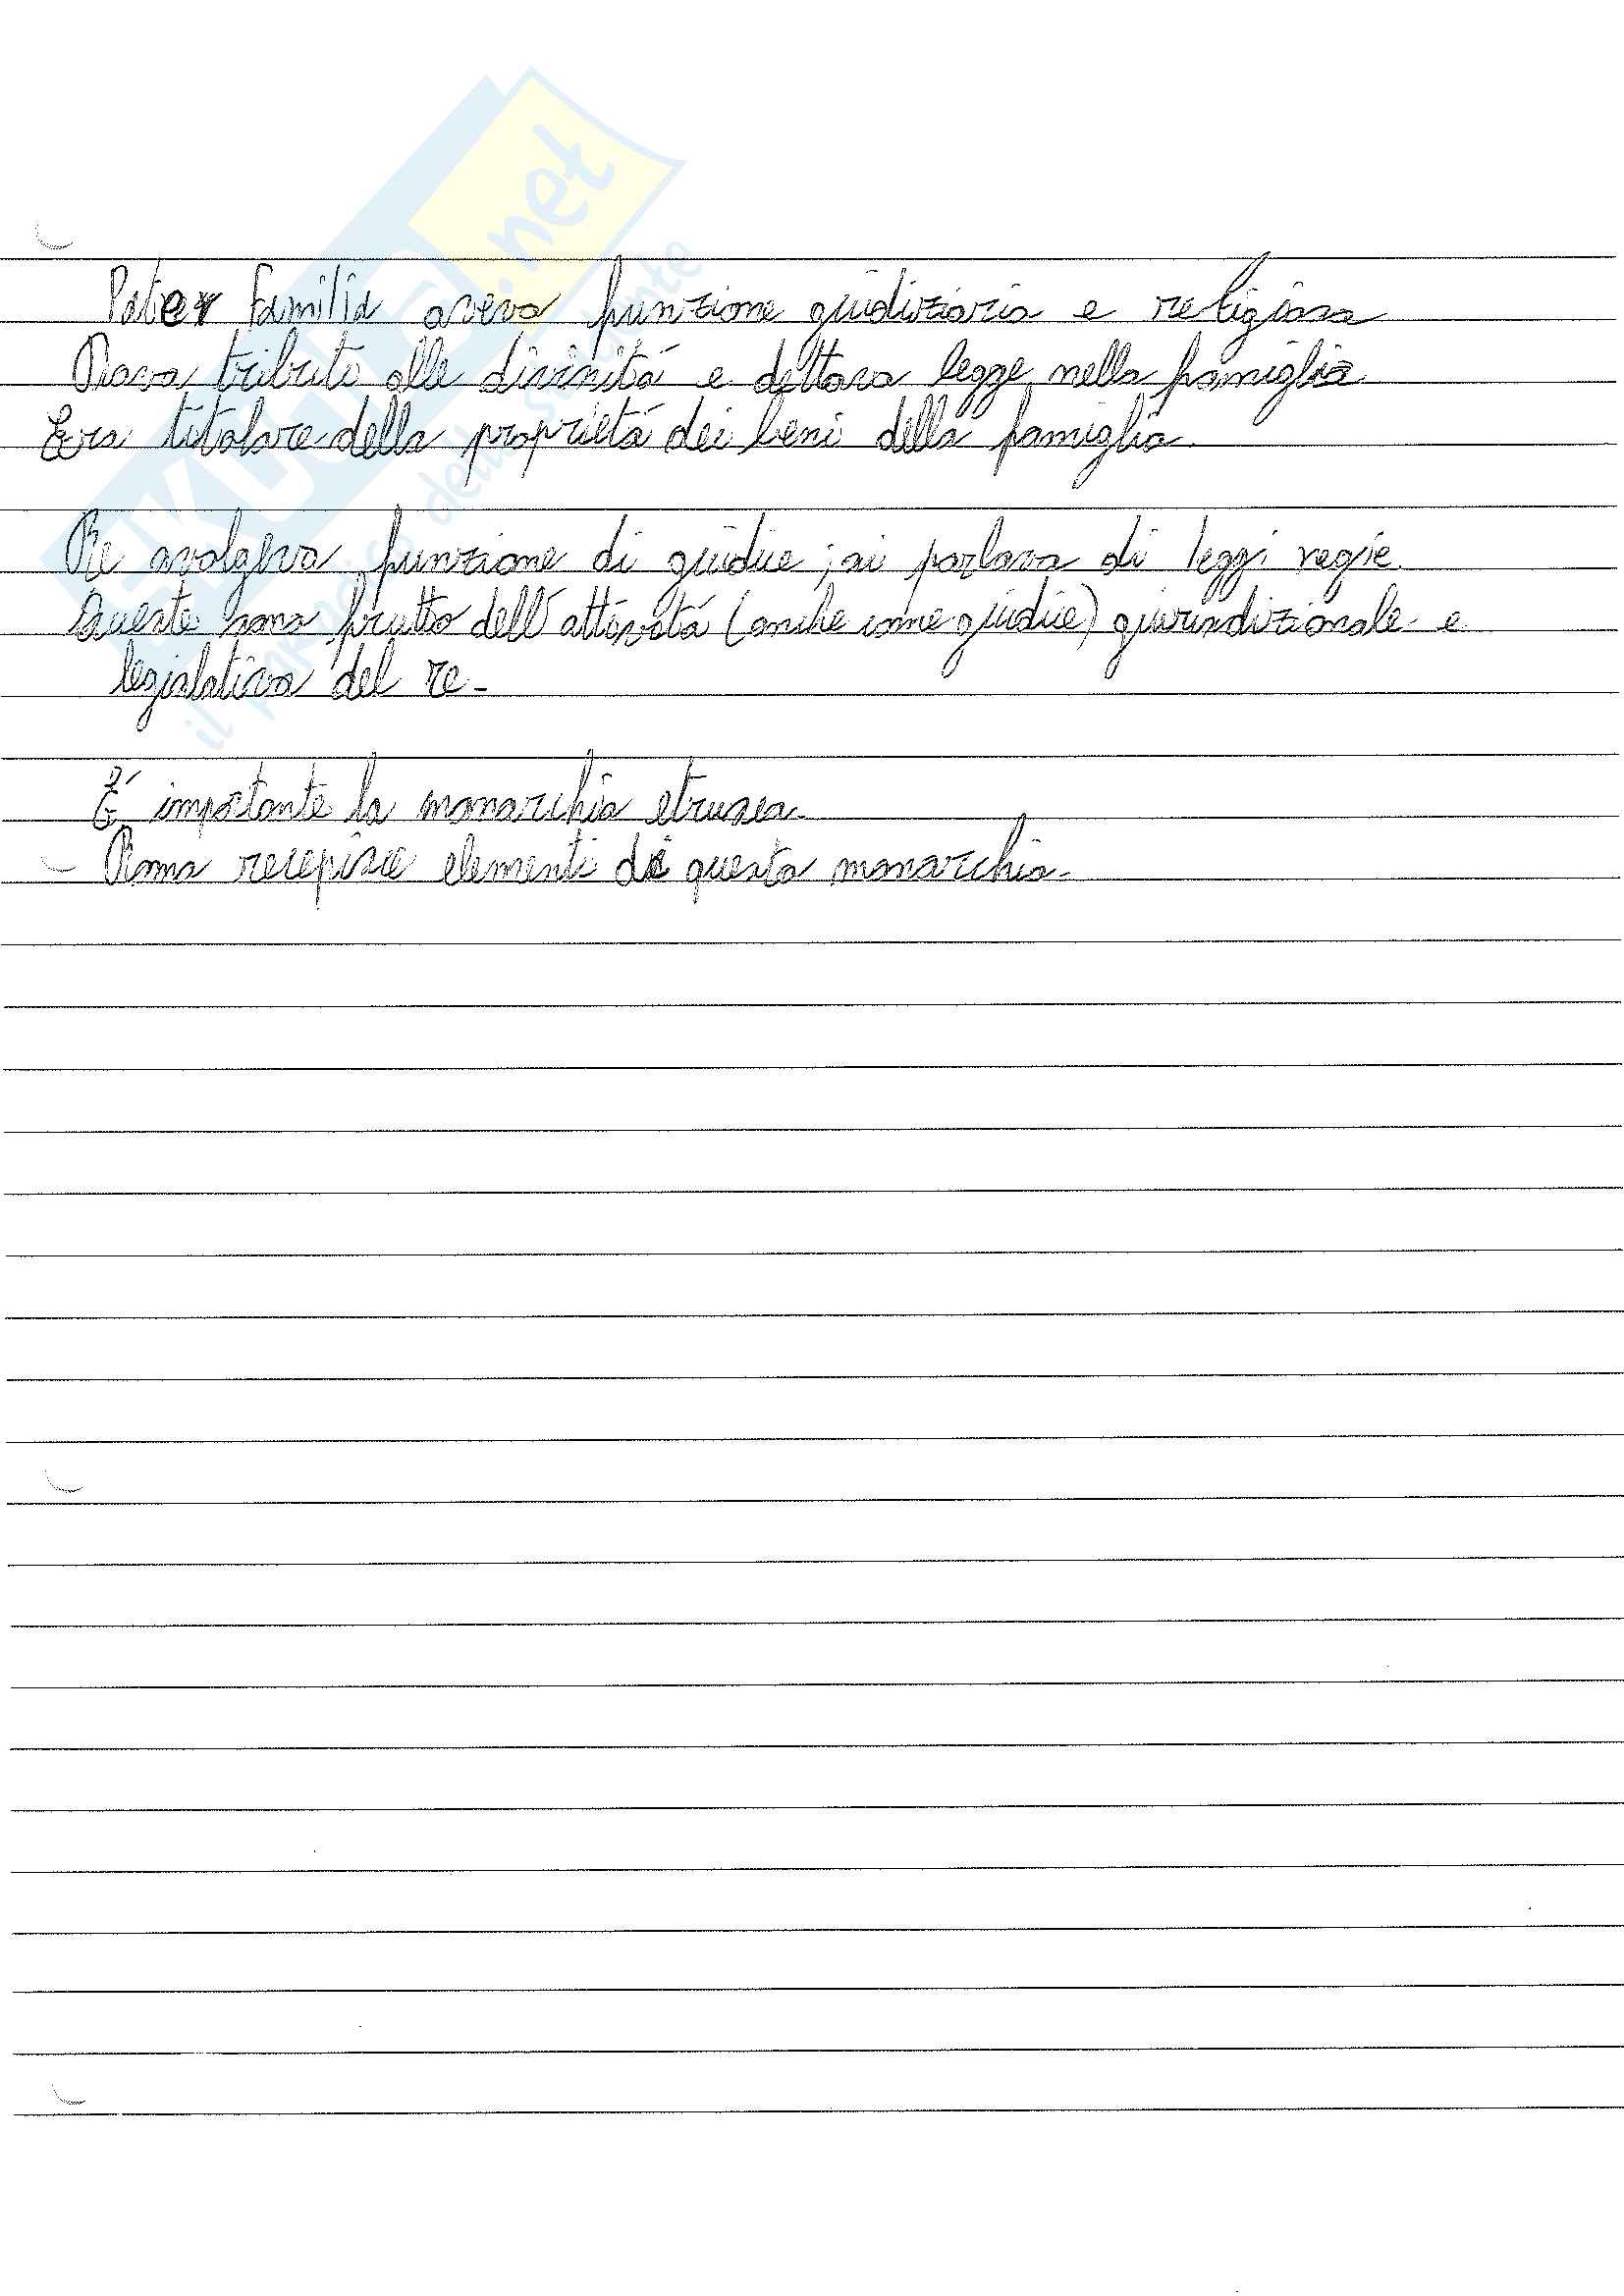 Pater Familia aveva funzione giudiziaria e religiosa
Dava tributo alle divinitá e dettava legge nella famiglia
Era titolare della proprietá dei beni della famiglia.
Re svolgeva funzione di giudice; si parlava di leggi regie.
Queste sono frutto dell'attivitá (anche come giudice) giurisdizionale e
legislativa del re.
É importante la monarchia etrusca.
Roma recepisce elementi di questa monarchia.
.net
il paradiso dello studente